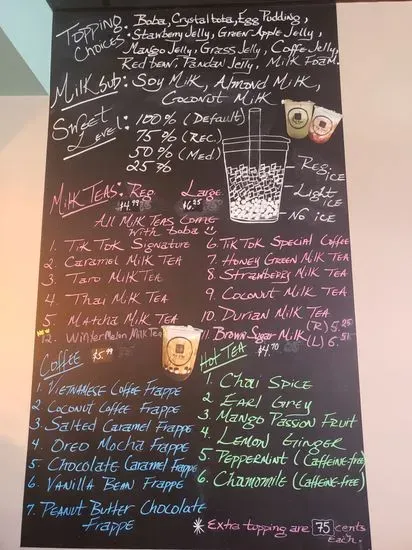 Topping Choices: Boba, Crystal boba, Egg Pudding,
Strawberry Jelly, Green Apple Jelly,
Mango Jelly, Grass Jelly, Coffe Jelly,
Red bean, Pandan Jelly, Milk Foam.
Milk sub: Soy Milk, Almond Milk,
Coconut Milk
Sweet Level: 100% (Default)
75% (Rec.)
50% (Med)
25%
Reg. ice
Light ice
No ice
Milk Teas: Reg. Large
$4.99 $6.35
All Milk Teas Come
with boba
1. Tik Tok Signature
2. Caramel Milk Tea
3. Taro Milk Tea
4. Thai Milk Tea
5. Matcha Milk Tea
12. Winter Melon Milk Tea
6. Tik Tok Special Coffee
7. Honey Green Milk Tea
8. Strawberry Milk Tea
9. Coconut Milk Tea
10. Durian Milk Tea
11. Brown Sugar Milk (R) 5.25
(L)
Coffee $5.99
1. Vietnamese Coffee Frappe
2. Coconut Coffee Frappe
3. Salted Caramel Frappe
4. Oreo Mocha Frappe
5. Chocolate Caramel Frappe
6. Vanilla Bean Frappe
7. Peanut Butter Chocolate
Frappe
Hot Tea $4.70
1. Chai Spice
2. Earl Grey
3. Mango Passion Fruit
4. Lemon Ginger
5. Peppermint (Caffeine-free)
6. Chamomile (Caffeine-free)
* Extra topping are 75 cents
each.